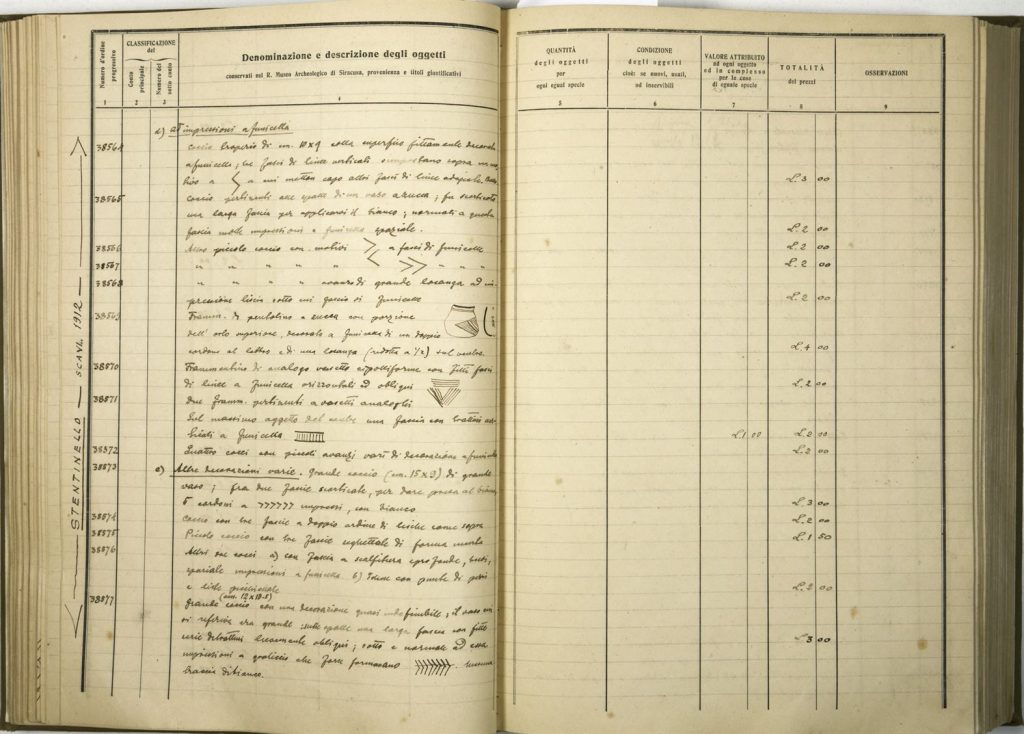 Numero d'ordine progressivo
CLASSIFICAZIONE del
Conto principale
Numero del sotto conto
Denominazione e descrizione degli oggetti
conservati nel R. Museo Archeologico di Siracusa, provenienza e titoli giustificativi
1 2 3 4
QUANTITÀ degli oggetti per ogni egual specie
CONDIZIONE degli oggetti cioè: se nuovi, usati, od inservibili
VALORE ATTRIBUITO ad ogni oggetto ed in complesso per le cose di eguale specie
TOTALITÀ dei prezzi
OSSERVAZIONI
5 6 7 8 9
STENTINELLO — SCAVI 1912
d) ad impressioni a funicella
38564 coccio di cm. 10 x 9 colla superficie fittamente decorata
a funicella; tre fasci di linee verticali sopra un
a cui metton capo altri fasci di linee L. 3 00
38565 coccio pertinente alle spalle di un vaso a zucca; fu scorticata
una larga fascia per applicarvi il bianco; normali a questa
fascia molte impressioni a funicella spaziate. L. 2 00
38566 Altro piccolo coccio con motivi a fasci di funicelle L. 2 00
38567 " " " " " " " " L. 2 00
38568 " " " " " avanzo di grande losanga ad im-
pressione liscia sotto funicelle L. 2 00
38569 Framm. di pentolino a zucca con porzione
dell' orlo superiore, decorato a funicella di un doppio
cordone al e di una losanga (ridotta a 1/2) sul ventre. L. 4 00
38570 Frammentino di analogo vasetto con fitti fasci
di linee a funicella orizzontali ed obliqui L. 2 00
38571 Due framm. pertinenti a vasetti analoghi
Sul massimo aggetto del ventre una fascia con
a funicella L. 1 00 L. 2 00
38572 Quattro cocci con piccoli avanzi vari di decorazione a funicella L. 2 00
38573 e) Altre decorazioni varie. Grande coccio (cm. 15 x 9) di grande
vaso; fra due fasce scorticate, per dare presa al bianco,
5 cordoni a impressi, con bianco L. 3 00
38574 Coccio con tre fasce a doppio ordine di come sopra L. 2 00
38575 Piccolo coccio con tre fasce di forma L. 1 50
38576 Altri due cocci a) con fascia a scalfittura profonda,
spaziate impressioni a funicella b) Idem con punte di
e L. 2 00
(cm. 12 x 10.5)
38577 Grande coccio con una decorazione quasi indefinibile; il vaso cui
si riferiva era grande; sulle spalle una larga fascia con fitte
serie di trattini lievemente obliqui; sotto e normale ad essa L. 3 00
impressioni a graticcio che forse formavano nessuna
traccia di bianco.